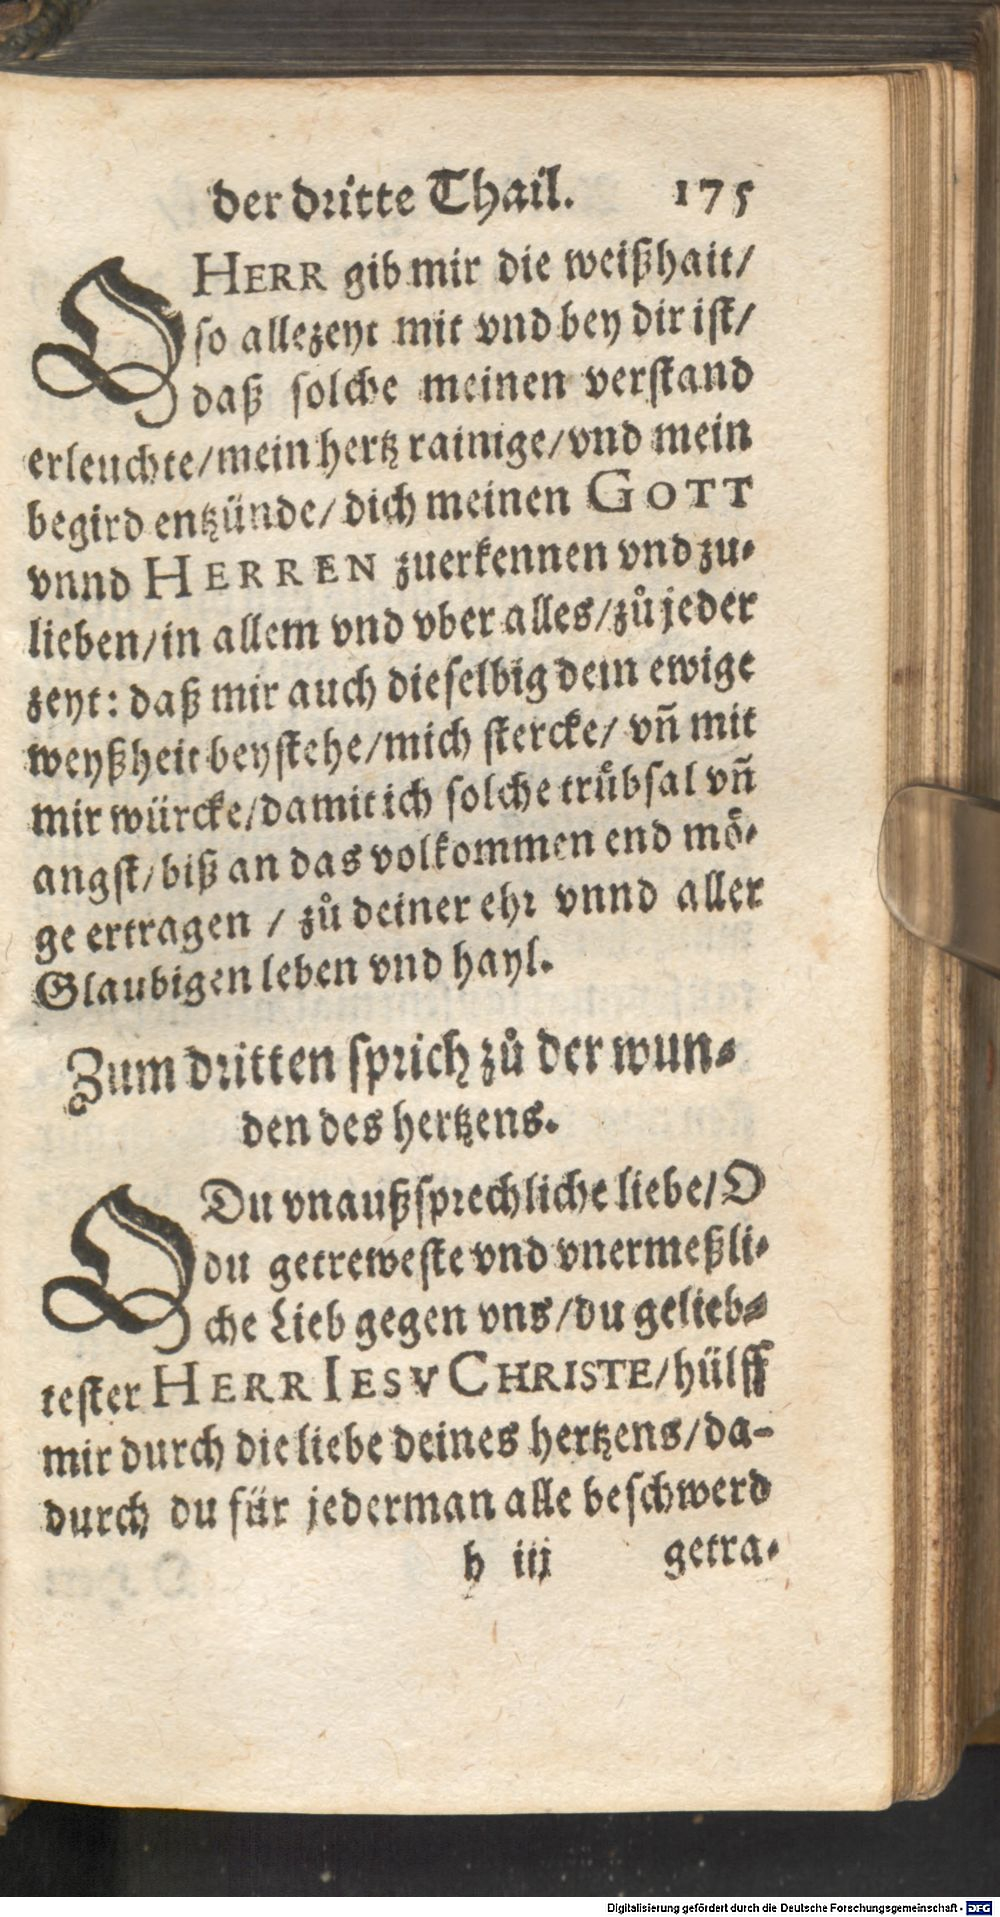 der dritte Thail. 175
O HERR gib mir die weißhait/
so allezeyt mit vnd bey dir ist/
daß solche meinen verstand
erleuchte/mein hertz rainige/vnd mein
begird entzünde/dich meinen GOTT
vnnd HERREN zuerkennen vnd zu-
lieben/in allem vnd vber alles/zů jeder
zeyt: daß mir auch dieselbig dein ewige
weyßheit beystehe/mich stercke/ vñ mit
mir würcke/damit ich solche trůbsal vñ
angst/biß an das volkommen end mö-
ge ertragen / zů deiner ehr vnnd aller
Glaubigen leben vnd hayl.
Zum dritten sprich zů der wun-
den des hertzens.
O Du vnaußsprechliche liebe/O
du getreweste vnd vnermeßli-
che Lieb gegen vns/du gelieb-
tester HERR IESV CHRISTE/hülff
mir durch die liebe deines hertzens/da-
durch du für jederman alle beschwerd
h iij getra-
Digitalisierung gefördert durch die Deutsche Forschungsgemeinschaft - DFG